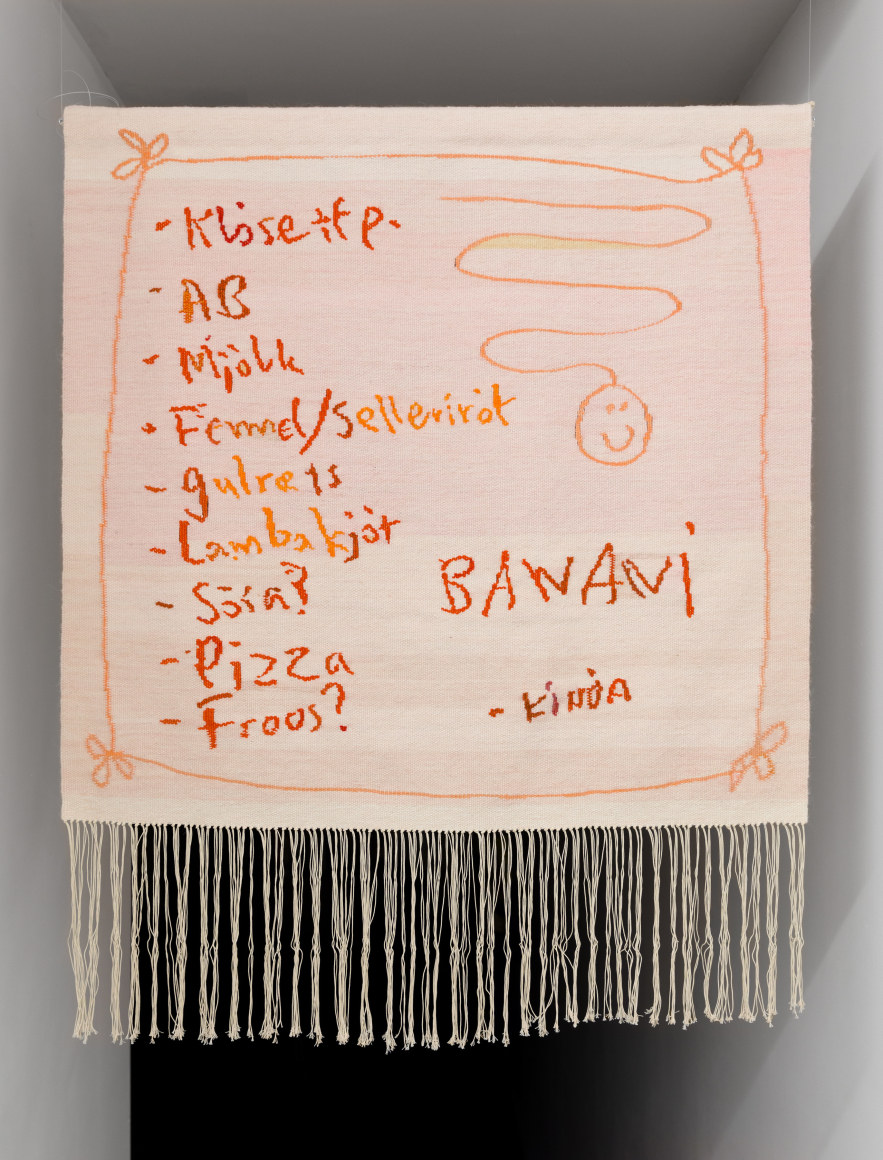 - Klósettp.
- AB
- Mjólk
- Fennel/Sellerírót
- gulrets
- Lambakjöt
- Sósa?
- Pizza
- Froos?
BANANI
- KINDA